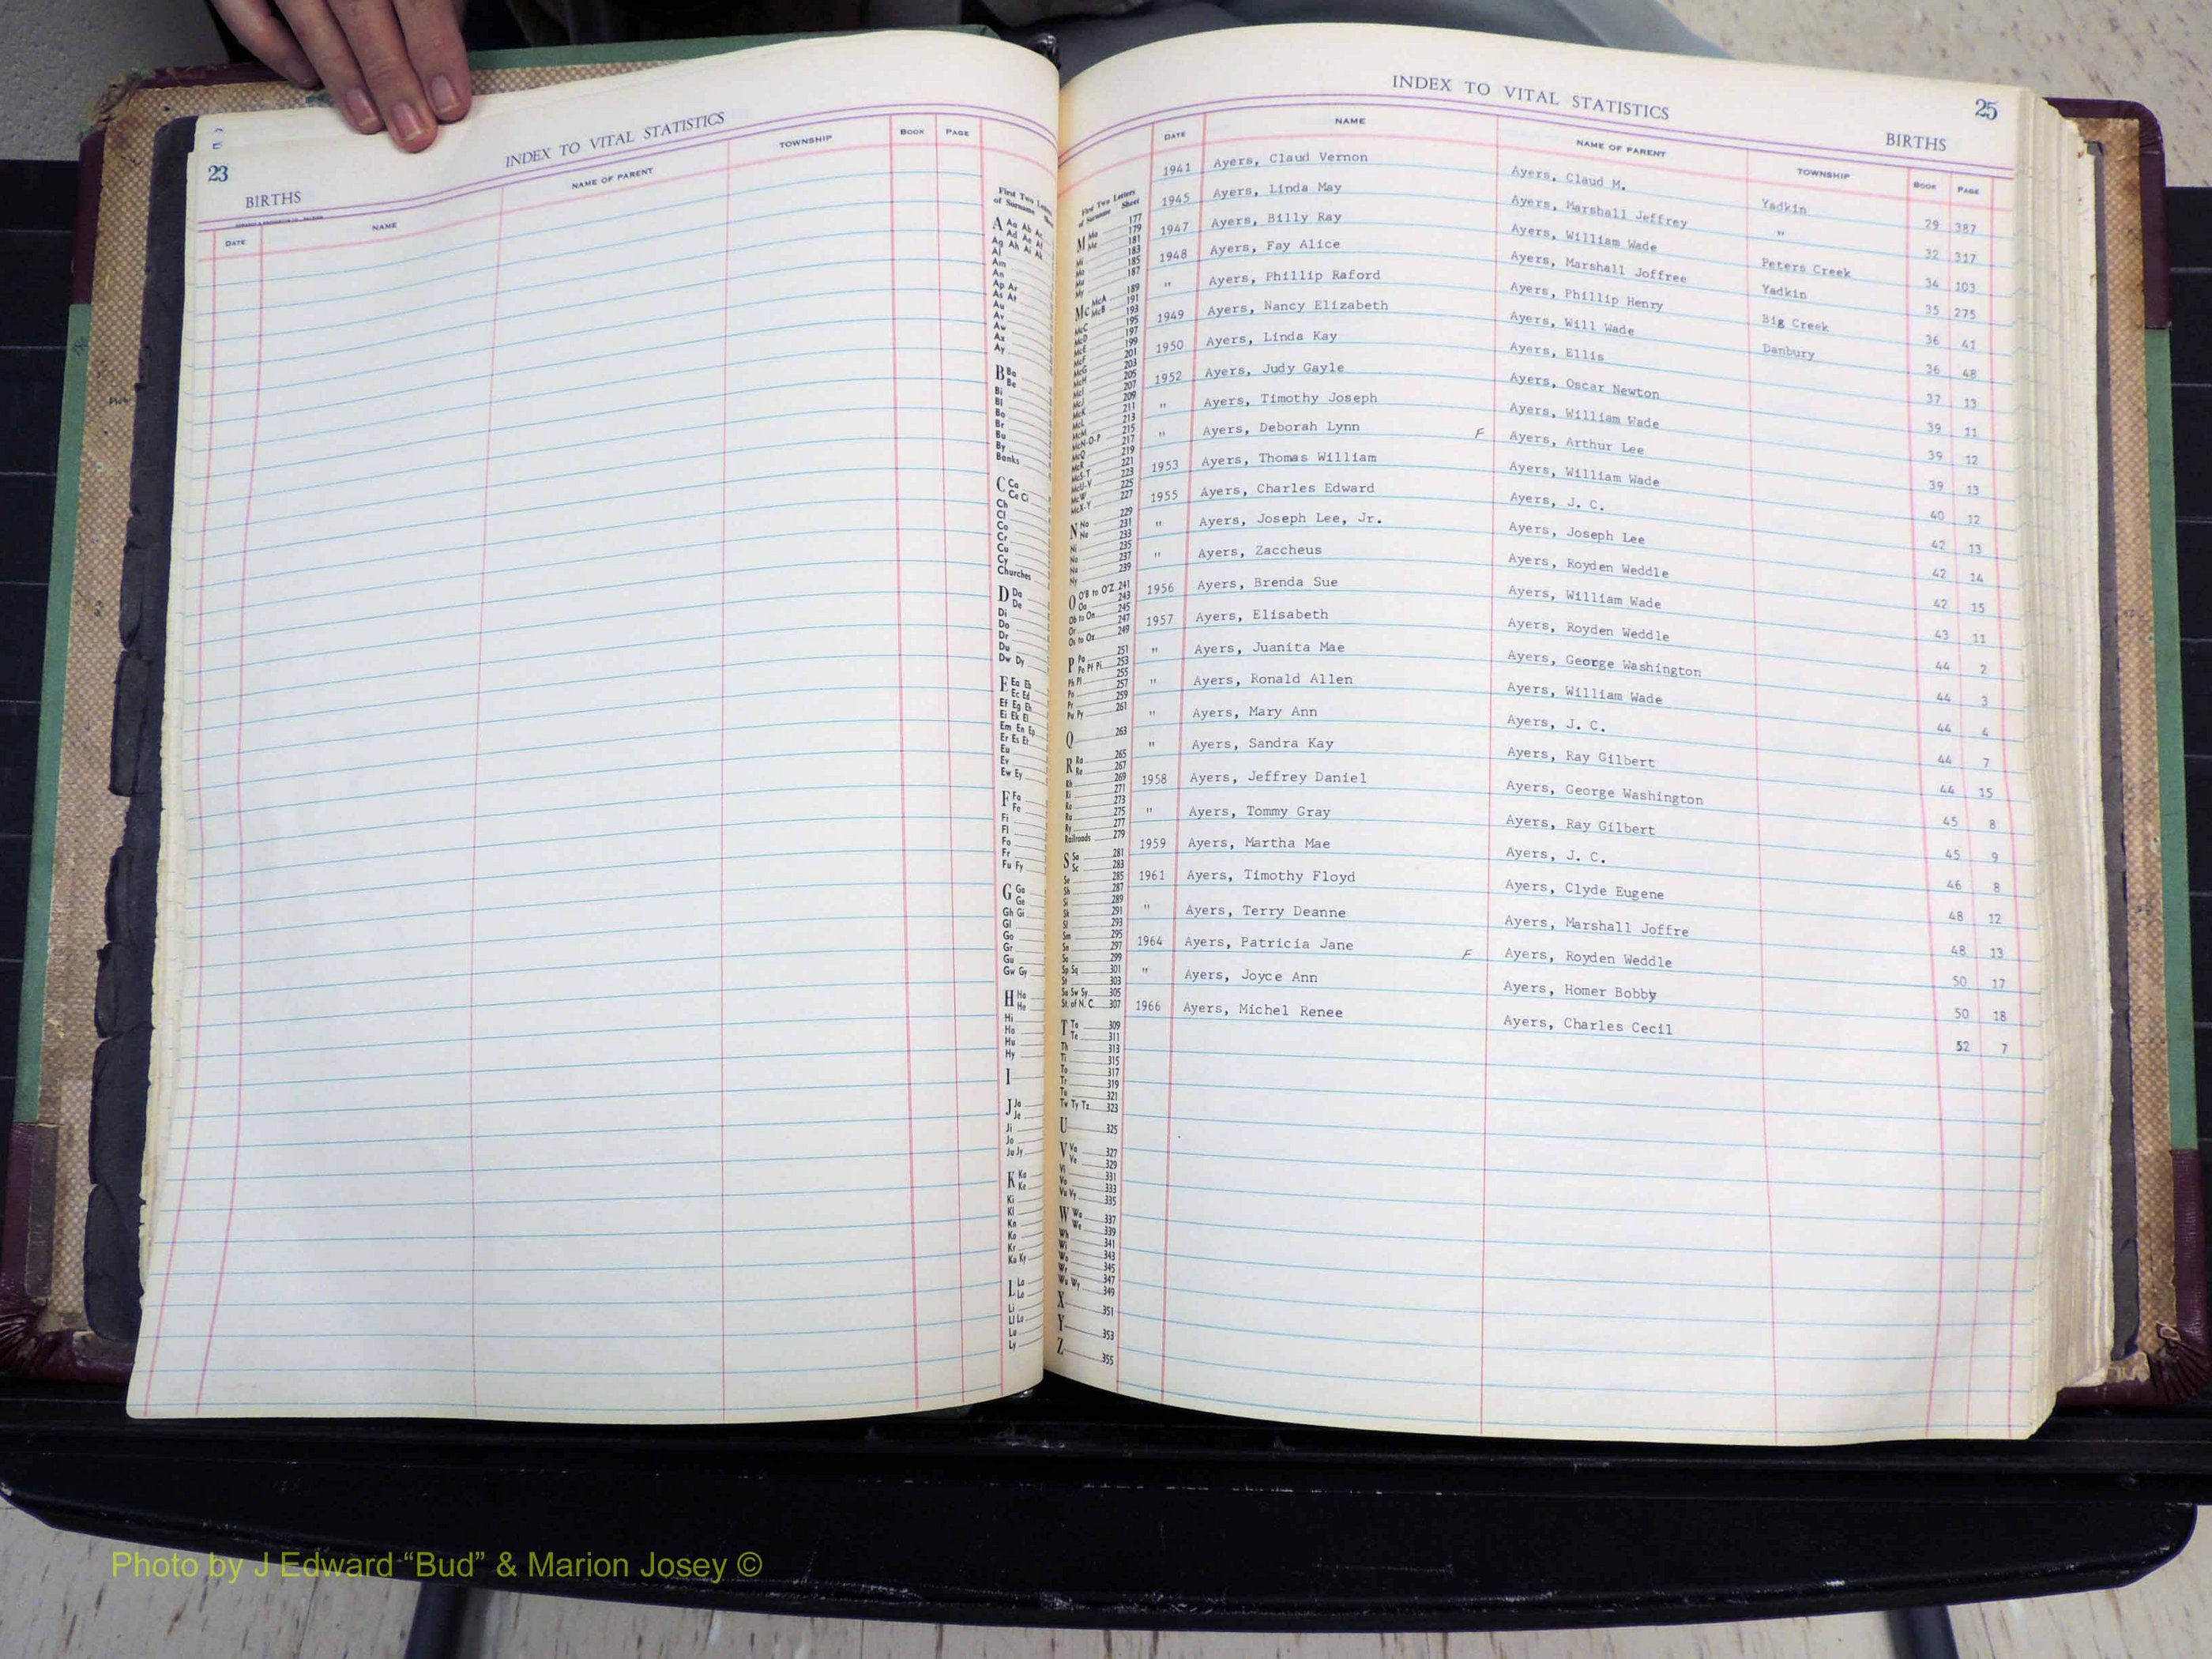 23
INDEX TO VITAL STATISTICS
BIRTHS
DATE NAME NAME OF PARENT TOWNSHIP BOOK PAGE
First Two Letters
of Surname
A Aa Ab Ac
Ad Ae Af
Ag Ah Ai Ak
Al
Am
An
Ap Ar
As At
Au
Av
Aw
Ax
Ay
B Ba
Be
Bi
Bl
Bo
Br
Bu
By
Banks
C Ca
Ce Ci
Ch
Cl
Co
Cr
Cu
Cy
Churches
D Da
De
Di
Do
Dr
Du
Dw Dy
E Ea Eb
Ec Ed
Ef Eg Eh
Ei Ek El
Em En Ep
Er Es Et
Eu
Ev
Ew Ey
F Fa
Fe
Fi
Fl
Fo
Fr
Fu Fy
G Ga
Ge
Gh Gi
Gl
Go
Gr
Gu
Gw Gy
H Ha
He
Hi
Ho
Hu
Hy
I
J Ja
Je
Ji
Jo
Ju Jy
K Ka
Ke
Ki
Kl
Kn
Ko
Kr
Ku Ky
L La
Le
Li
Ll Lo
Lu
Ly
INDEX TO VITAL STATISTICS
25
BIRTHS
DATE NAME NAME OF PARENT TOWNSHIP BOOK PAGE
1941 Ayers, Claud Vernon Ayers, Claud M. Yadkin 29 387
1945 Ayers, Linda May Ayers, Marshall Jeffrey " 32 317
1947 Ayers, Billy Ray Ayers, William Wade Peters Creek 34 103
1948 Ayers, Fay Alice Ayers, Marshall Joffree Yadkin 35 275
" Ayers, Phillip Raford Ayers, Phillip Henry Big Creek 36 41
1949 Ayers, Nancy Elizabeth Ayers, Will Wade Danbury 36 48
1950 Ayers, Linda Kay Ayers, Ellis 37 13
1952 Ayers, Judy Gayle Ayers, Oscar Newton 39 11
" Ayers, Timothy Joseph Ayers, William Wade 39 12
" Ayers, Deborah Lynn F Ayers, Arthur Lee 39 13
1953 Ayers, Thomas William Ayers, William Wade 40 12
1955 Ayers, Charles Edward Ayers, J. C. 42 13
" Ayers, Joseph Lee, Jr. Ayers, Joseph Lee 42 14
" Ayers, Zaccheus Ayers, Royden Weddle 42 15
1956 Ayers, Brenda Sue Ayers, William Wade 43 11
1957 Ayers, Elisabeth Ayers, Royden Weddle 44 2
" Ayers, Juanita Mae Ayers, George Washington 44 3
" Ayers, Ronald Allen Ayers, William Wade 44 4
" Ayers, Mary Ann Ayers, J. C. 44 7
" Ayers, Sandra Kay Ayers, Ray Gilbert 44 15
1958 Ayers, Jeffrey Daniel Ayers, George Washington 45 8
" Ayers, Tommy Gray Ayers, Ray Gilbert 45 9
1959 Ayers, Martha Mae Ayers, J. C. 46 8
1961 Ayers, Timothy Floyd Ayers, Clyde Eugene 48 12
" Ayers, Terry Deanne Ayers, Marshall Joffre 48 13
1964 Ayers, Patricia Jane F Ayers, Royden Weddle 50 17
" Ayers, Joyce Ann Ayers, Homer Bobby 50 18
1966 Ayers, Michel Renee Ayers, Charles Cecil 52 7
First Two Letters
of Surname Sheet
M Ma 177
Me 179
Mi 181
Mo 183
Mu 185
My 187
Mc McA 189
McB 191
McC 193
McD 195
McE 197
McF 199
McG 201
McH 203
McI 205
McJ 207
McK 209
McL 211
McM 213
McN-O-P 215
McQ 217
McR 219
McS-T 221
McU-V 223
McW 225
McX-Y 227
N Na 229
Ne 231
Ni 233
No 235
Nu 237
Ny 239
O O'B to O'Z 241
Oa 243
Ob to On 245
Or 247
Os to Oz 249
P Pa 251
Pe Pf Pi 253
Ph Pl 255
Po 257
Pr 259
Pu Py 261
Q 263
R Ra 265
Re 267
Rh 269
Ri 271
Ro 273
Ru 275
Ry 277
Railroads 279
S Sa 281
Sc 283
Se 285
Sh 287
Si 289
Sk 291
Sl 293
Sm 295
Sn 297
So 299
Sp Sq 301
St 303
Su Sw Sy 305
St. of N. C. 307
T Ta 309
Te 311
Th 313
Ti 315
To 317
Tr 319
Tu 321
Tw Ty Tz 323
U 325
V Va 327
Ve 329
Vi 331
Vo 333
Vu Vy 335
W Wa 337
We 339
Wh 341
Wi 343
Wo 345
Wr 347
Wu Wy 349
X 351
Y 353
Z 355
Photo by J Edward “Bud” & Marion Josey ©